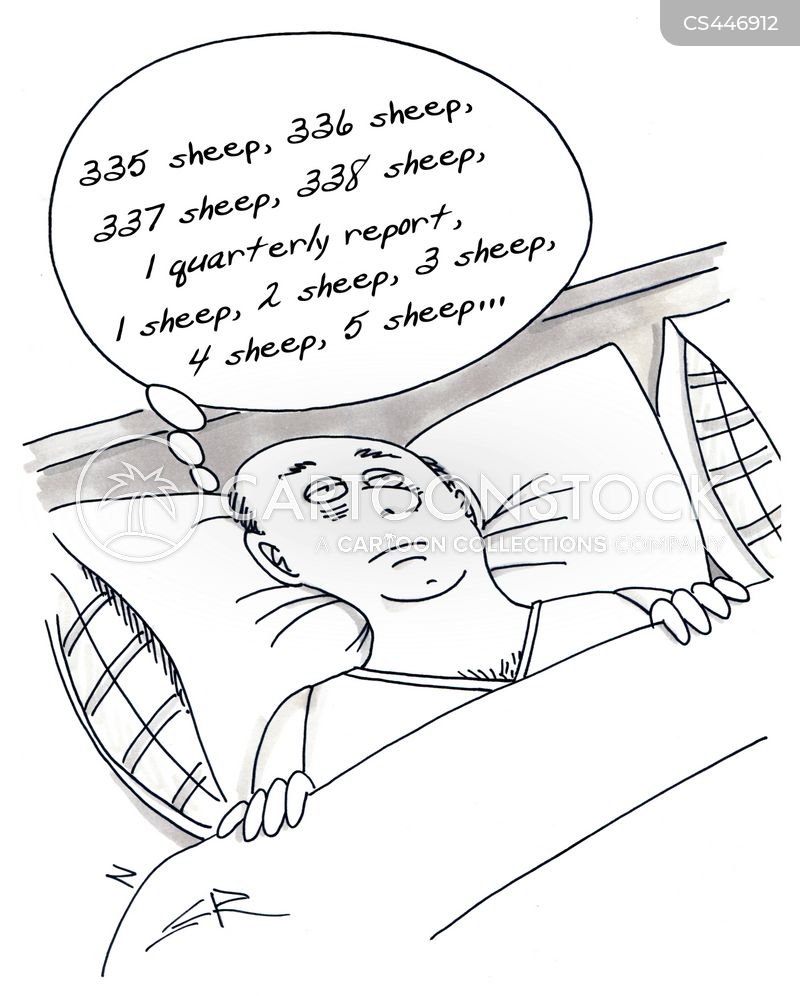 CS446912
335 sheep, 336 sheep,
337 sheep, 338 sheep,
1 quarterly report,
1 sheep, 2 sheep, 3 sheep,
4 sheep, 5 sheep...
CARTOONSTOCK
A CARTOON COLLECTIONS COMPANY